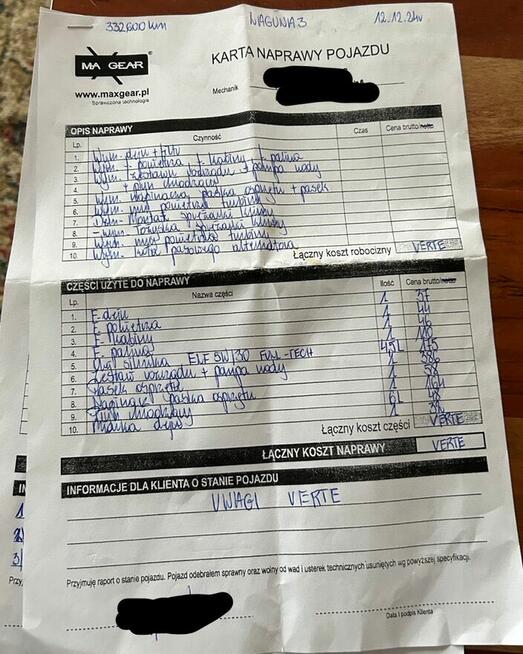 332600 km LAGUNA 3 12.12.24r
MA GEAR ®
www.maxgear.pl
Sprawdzona technologia
KARTA NAPRAWY POJAZDU
Mechanik
OPIS NAPRAWY
Lp. Czynność Czas Cena brutto/netto
1. Wym. oleju + filtr
2. Wym. f. powietrza + kabiny + paliwa
3. Wym. zestawu rozrządu + pompa wody
4. + płyn chłodzący
5. Wym. napinacza paska osprzętu + pasek
6. Wym. powietrza turbiny
7. Dem. - Montaż sprężarki klimy
8. - wym. łożyska sprężarki klimy
9. Wym. powietrza turbiny
10. Wym. koła pasowego alternatora
Łączny koszt robocizny VERTE
CZĘŚCI UŻYTE DO NAPRAWY
Lp. Nazwa części Ilość Cena brutto/netto
1. F. oleju 1 37
2. F. powietrza 1 44
3. F. kabiny 1 46
4. F. paliwa 1 110
5. Olej silnika ELF 5W/30 FULL-TECH 4,5L 175
6. Zestaw rozrządu + pompa wody 1 386
7. Pasek osprzętu 1 58
8. Napinacz paska osprzętu 1 164
9. Płyn chłodzący 6L 48
10. oleju 1
Łączny koszt części VERTE
ŁĄCZNY KOSZT NAPRAWY VERTE
INFORMACJE DLA KLIENTA O STANIE POJAZDU
UWAGI VERTE
Przyjmuję raport o stanie pojazdu. Pojazd odebrałem sprawny oraz wolny od wad i usterek technicznych usuniętych wg powyższej specyfikacji.
Data i podpis Klienta